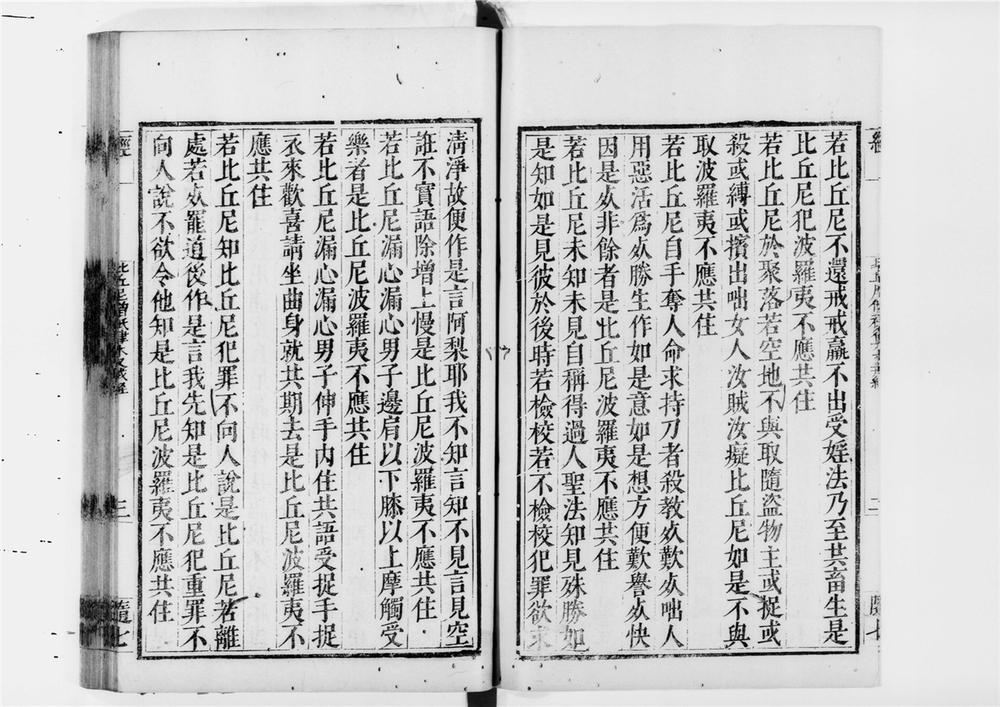 若比丘尼不還戒戒羸不出受婬法乃至共畜生是
比丘尼犯波羅夷不應共住
若比丘尼於聚落若空地不與取隨盜物主或捉或
殺或縛或擯出咄女人汝賊汝癡比丘尼如是不與
取波羅夷不應共住
若比丘尼自手奪人命求持刀者殺教死歎死咄人
用惡活爲死勝生作如是意如是想方便歎譽死快
因是死非餘者是比丘尼波羅夷不應共住
若比丘尼未知未見自稱得過人聖法知見殊勝如
是知如是見彼於後時若檢校若不檢校犯罪欲求
清淨故便作是言阿梨耶我不知言知不見言見空
誑不實語除增上慢是比丘尼波羅夷不應共住
若比丘尼漏心漏心男子邊肩以下膝以上摩觸受
樂者是比丘尼波羅夷不應共住
若比丘尼漏心漏心男子伸手內住共語受捉手捉
衣來歡喜請坐曲身就共期去是比丘尼波羅夷不
應共住
若比丘尼知比丘尼犯罪不向人說是比丘尼若離
處若死罷道後作是言我先知是比丘尼犯重罪不
向人說不欲令他知是比丘尼波羅夷不應共住
經
比丘尼僧祇律波羅提木叉戒經
三
隨七